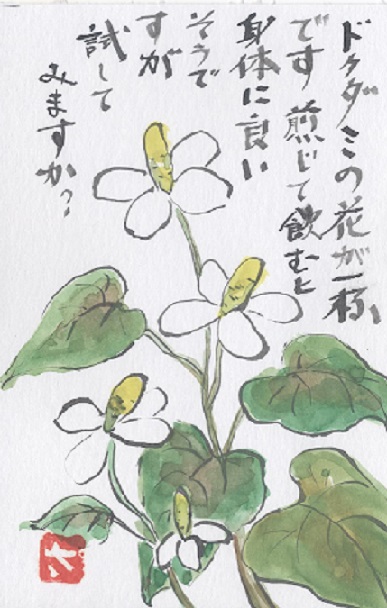 ドクダミの花が一杯
です 煎じて飲むと
身体に良い
そうで
すが
試して
みますか?